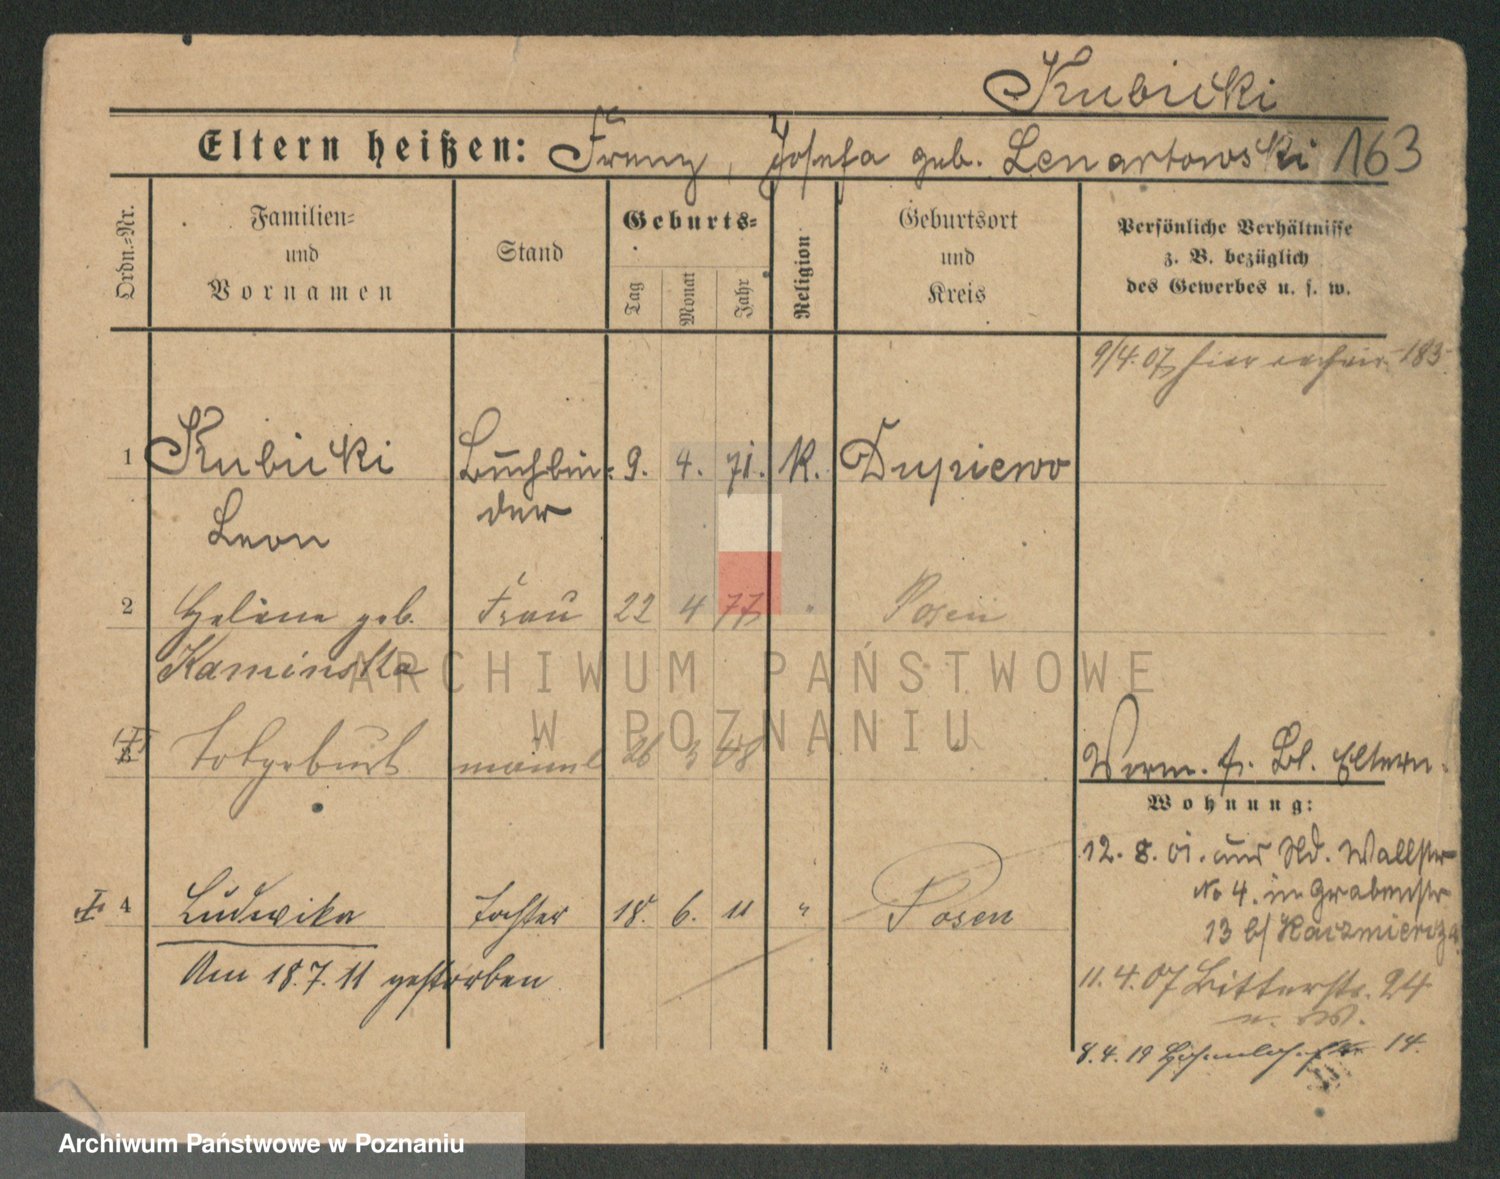 Kubicki
Eltern heißen: Franz, Josefa geb. Lenartowski 163
Ordn.=Nr.
Familien=
und
Vornamen
Stand
Geburts=
Tag
Monat
Jahr
Religion
Geburtsort
und
Kreis
Persönliche Verhältnisse
z. B. bezüglich
des Gewerbes u. s. w.
9/4.07 hier 183
1 Kubicki Buchbin= 9. 4. 71. K. Dupiewo
Leon der
2 Helene geb. Frau 22 4 77 " Posen
Kaminska
3 Totgeburt männl 26 3 08
Verm. f. Bl. Eltern.
Wohnung:
12. 8. 01. aus Wallstr
No 4. in Grabenstr
13 b/ Kaczmiercza
4 Ludwika Tochter 18. 6. 11 " Posen
Am 18.7.11 gestorben
11. 4. 07 Bitterstr. 24
u. W.
8. 4. 19 14.
ARCHIWUM PAŃSTWOWE
W POZNANIU
Archiwum Państwowe w Poznaniu